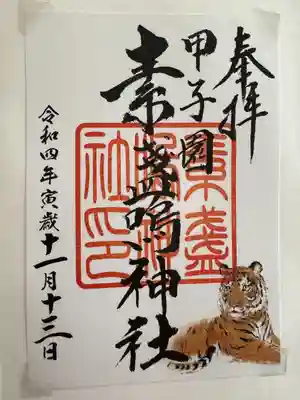 奉拝
甲子園
素盞嗚神社
令和四年寅歳十一月十三日